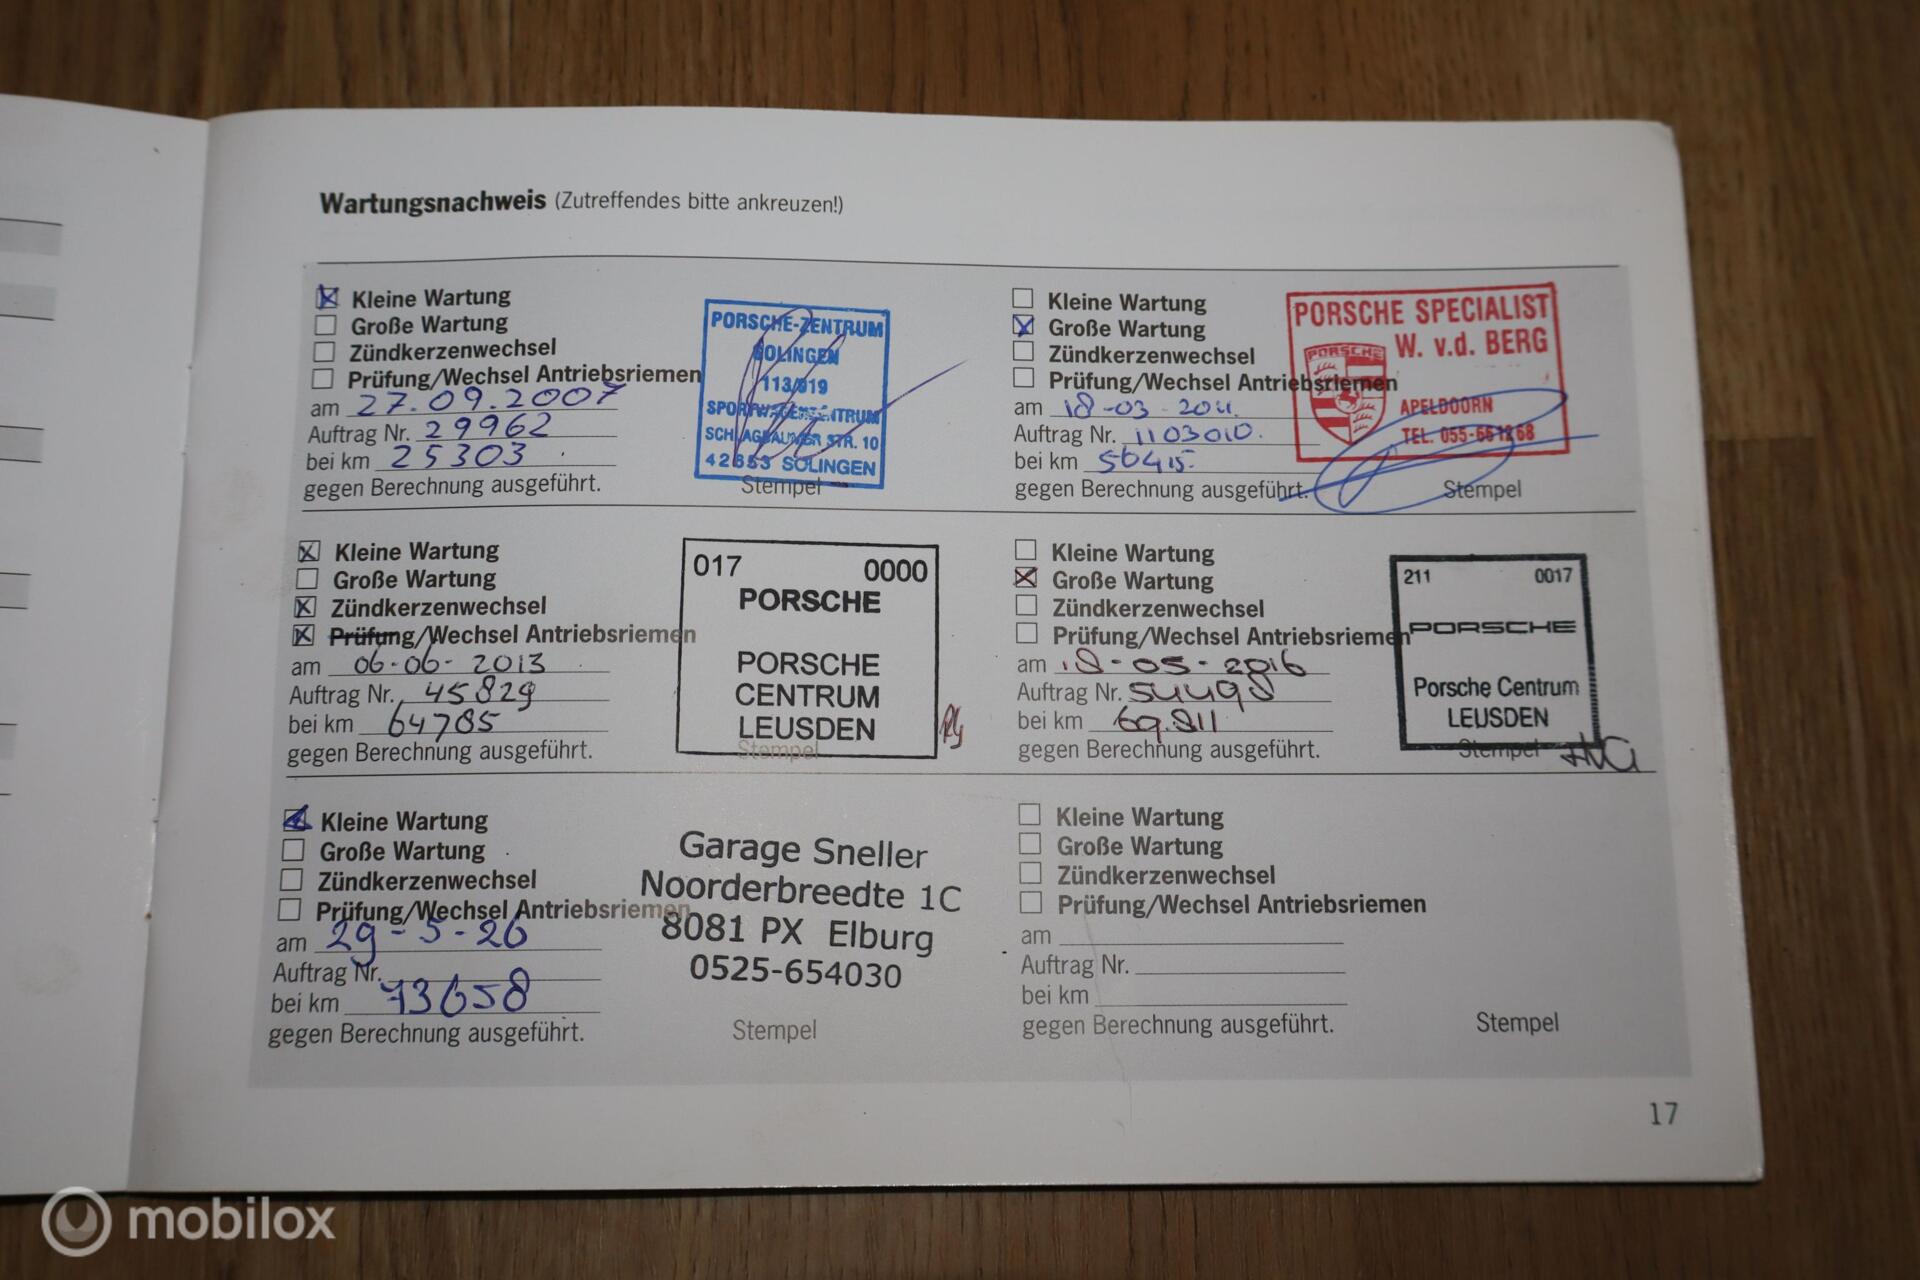 Wartungsnachweis (Zutreffendes bitte ankreuzen!)
Kleine Wartung
Große Wartung
Zündkerzenwechsel
Prüfung/Wechsel Antriebsriemen
am 27.09.2007
Auftrag Nr. 29962
bei km 25303
gegen Berechnung ausgeführt.
PORSCHE-ZENTRUM
SOLINGEN
113/919
SPORTWAGENZENTRUM
SCHLAGBAUMER STR. 10
42653 SOLINGEN
Stempel
Kleine Wartung
Große Wartung
Zündkerzenwechsel
Prüfung/Wechsel Antriebsriemen
am 18-03-2011.
Auftrag Nr. 1103010.
bei km 56415.
gegen Berechnung ausgeführt.
PORSCHE SPECIALIST
W. v.d. BERG
PORSCHE
APELDOORN
TEL. 055-661268
Stempel
Kleine Wartung
Große Wartung
Zündkerzenwechsel
Prüfung/Wechsel Antriebsriemen
am 06-06-2013
Auftrag Nr. 45829
bei km 64785
gegen Berechnung ausgeführt.
017 0000
PORSCHE
PORSCHE
CENTRUM
LEUSDEN
Stempel
Kleine Wartung
Große Wartung
Zündkerzenwechsel
Prüfung/Wechsel Antriebsriemen
am 18-05-2016
Auftrag Nr. 54498
bei km 69.811
gegen Berechnung ausgeführt.
211 0017
PORSCHE
Porsche Centrum
LEUSDEN
Stempel
Kleine Wartung
Große Wartung
Zündkerzenwechsel
Prüfung/Wechsel Antriebsriemen
am 29-5-26
Auftrag Nr.
bei km 73658
gegen Berechnung ausgeführt.
Garage Sneller
Noorderbreedte 1C
8081 PX Elburg
0525-654030
Stempel
Kleine Wartung
Große Wartung
Zündkerzenwechsel
Prüfung/Wechsel Antriebsriemen
am
Auftrag Nr.
bei km
gegen Berechnung ausgeführt.
Stempel
17
mobilox